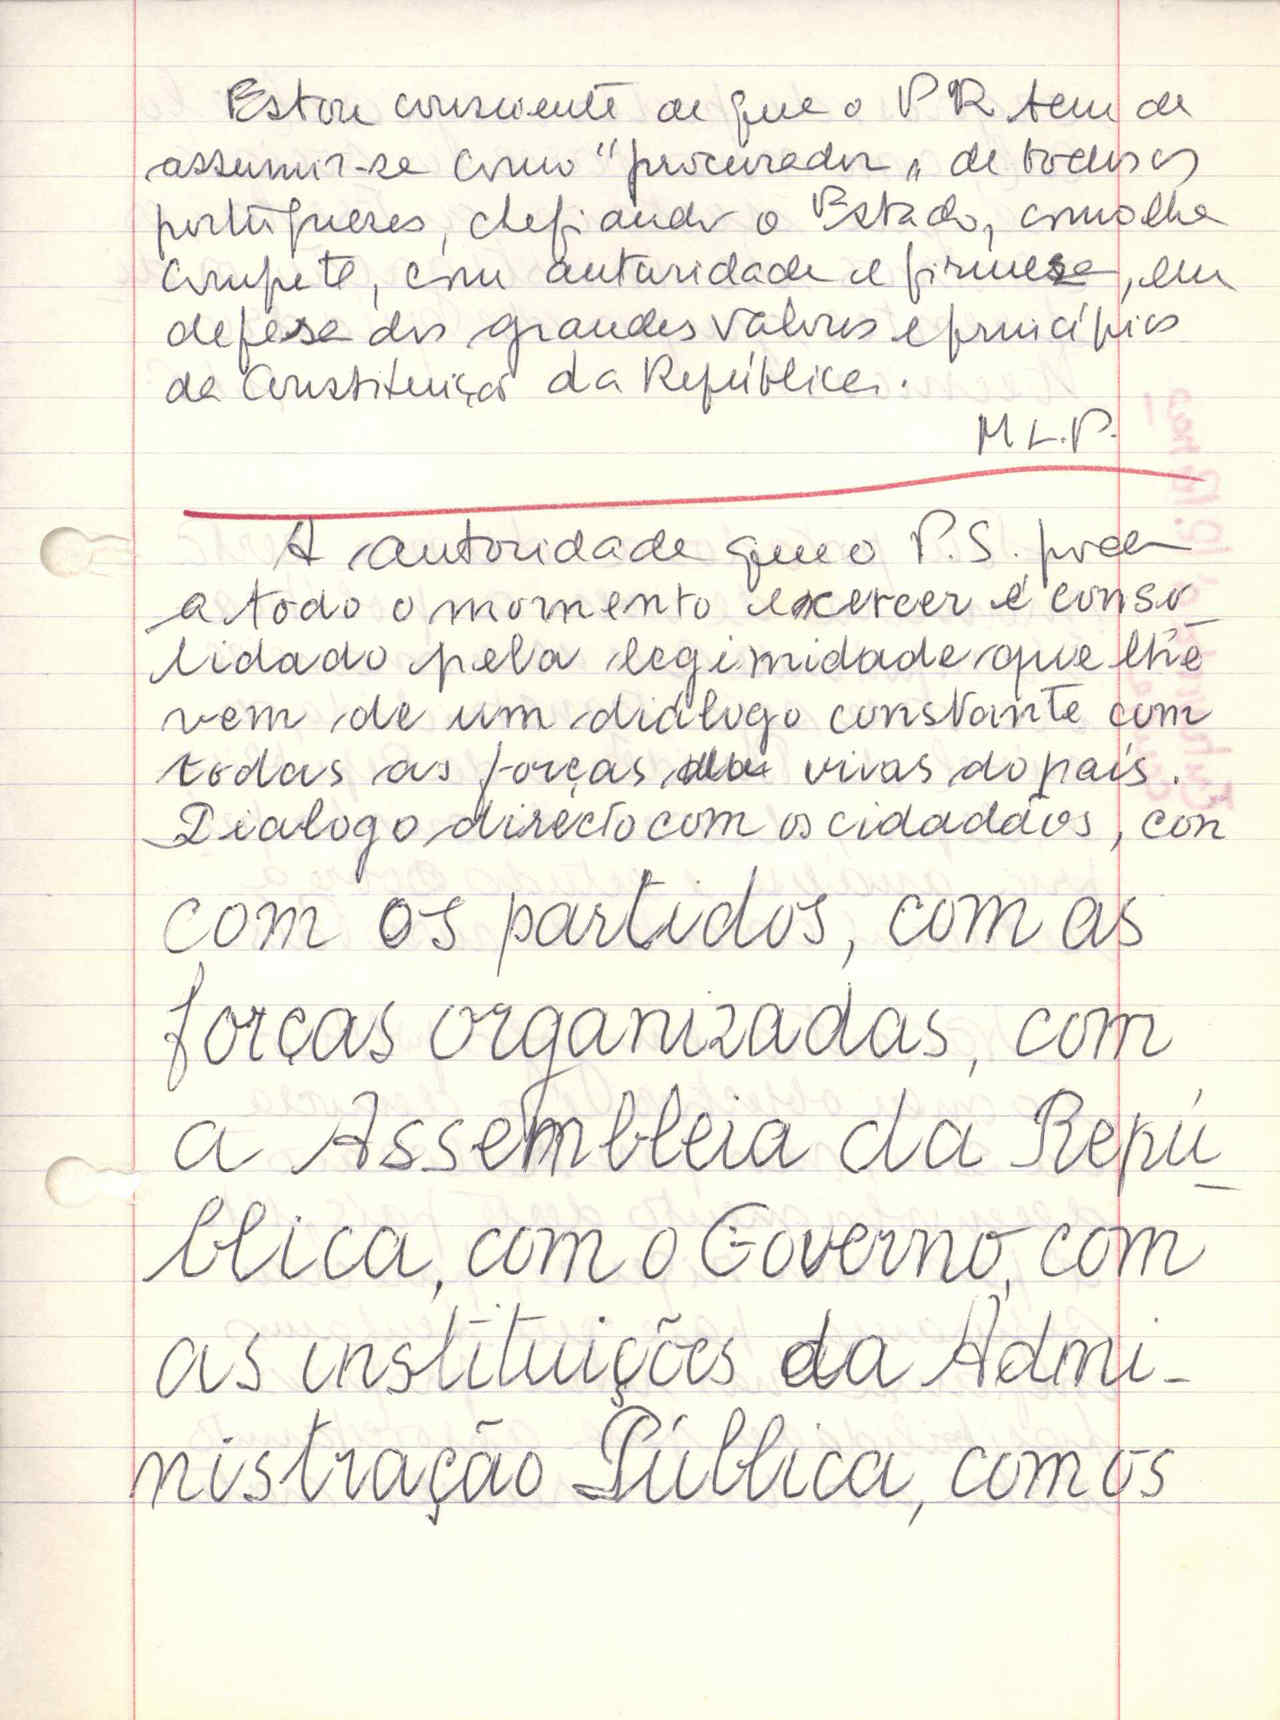 Estou consciente de que o PR tem de
assumir-se como "procurador" de todos os
portugueses, chefiando o Estado, como lhe
compete, com autoridade e firmeza, em
defesa dos grandes valores e princípios
da Constituição da República.
M L.P.
A autoridade que o P.S. pode
a todo o momento exercer é conso_
lidado pela legimidade que lhe
vem de um diálogo constante com
todas as forças vivas do país.
Dialogo directo com os cidadãos, con
com os partidos, com as
forças organizadas, com
a Assembleia da Repú_
blica, com o Governo, com
as instituições da Admi-
nistração Pública, com os